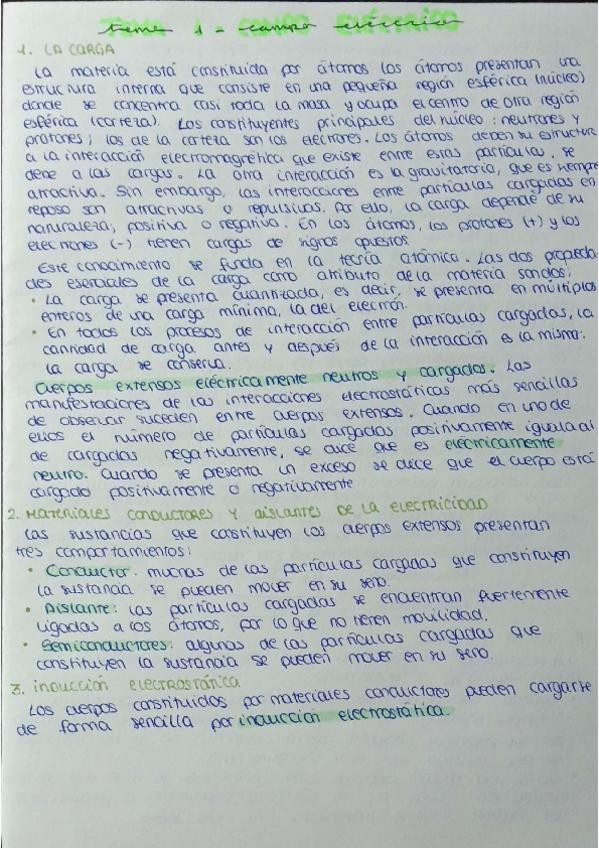 tema 1 - campo eléctrico
1. LA CARGA
La materia está constituida por átomos los átomos presentan una
estructura interna que consiste en una pequeña región esférica (núcleo)
donde se concentra casi toda la masa y ocupa el centro de otra región
esférica (corteza). Los constituyentes principales del núcleo: neutrones y
protones; los de la corteza son los electrones. Los átomos deben su estructura
a la interacción electromagnética que existe entre estas partículas, se
debe a las cargas. La otra interacción es la gravitatoria, que es siempre
atractiva. Sin embargo, las interacciones entre partículas cargadas en
reposo son atractivas o repulsivas. Por ello, la carga depende de su
naturaleza, positiva o negativa. En los átomos, los protones (+) y los
electrones (-) tienen cargas de signos opuestos.
Este conocimiento se funda en la teoría atómica. Las dos propieda-
des esenciales de la carga como atributo de la materia son dos:
• La carga se presenta cuantizada, es decir, se presenta en múltiplos
enteros de una carga mínima, la del electrón.
• En todos los procesos de interacción entre partículas cargadas, la
cantidad de carga antes y después de la interacción es la misma:
la carga se conserva.
Cuerpos extensos eléctricamente neutros y cargados. Las
manifestaciones de las interacciones electrostáticas más sencillas
de observar suceden entre cuerpos extensos. Cuando en uno de
ellos el número de partículas cargadas positivamente iguala al
de cargadas negativamente, se dice que es eléctricamente
neutro. Cuando se presenta un exceso se dice que el cuerpo está
cargado positivamente o negativamente
2. MATERIALES CONDUCTORES Y AISLANTES DE LA ELECTRICIDAD
Las sustancias que constituyen los cuerpos extensos presentan
tres comportamientos:
• Conductor: muchas de las partículas cargadas que constituyen
la sustancia se pueden mover en su seno.
• Aislante: las partículas cargadas se encuentran fuertemente
ligadas a los átomos, por lo que no tienen movilidad.
• Semiconductores: algunas de las partículas cargadas que
constituyen la sustancia se pueden mover en su seno.
3. inducción ELECTROSTÁTICA
Los cuerpos constituidos por materiales conductores pueden cargarse
de forma sencilla por inducción electrostática.